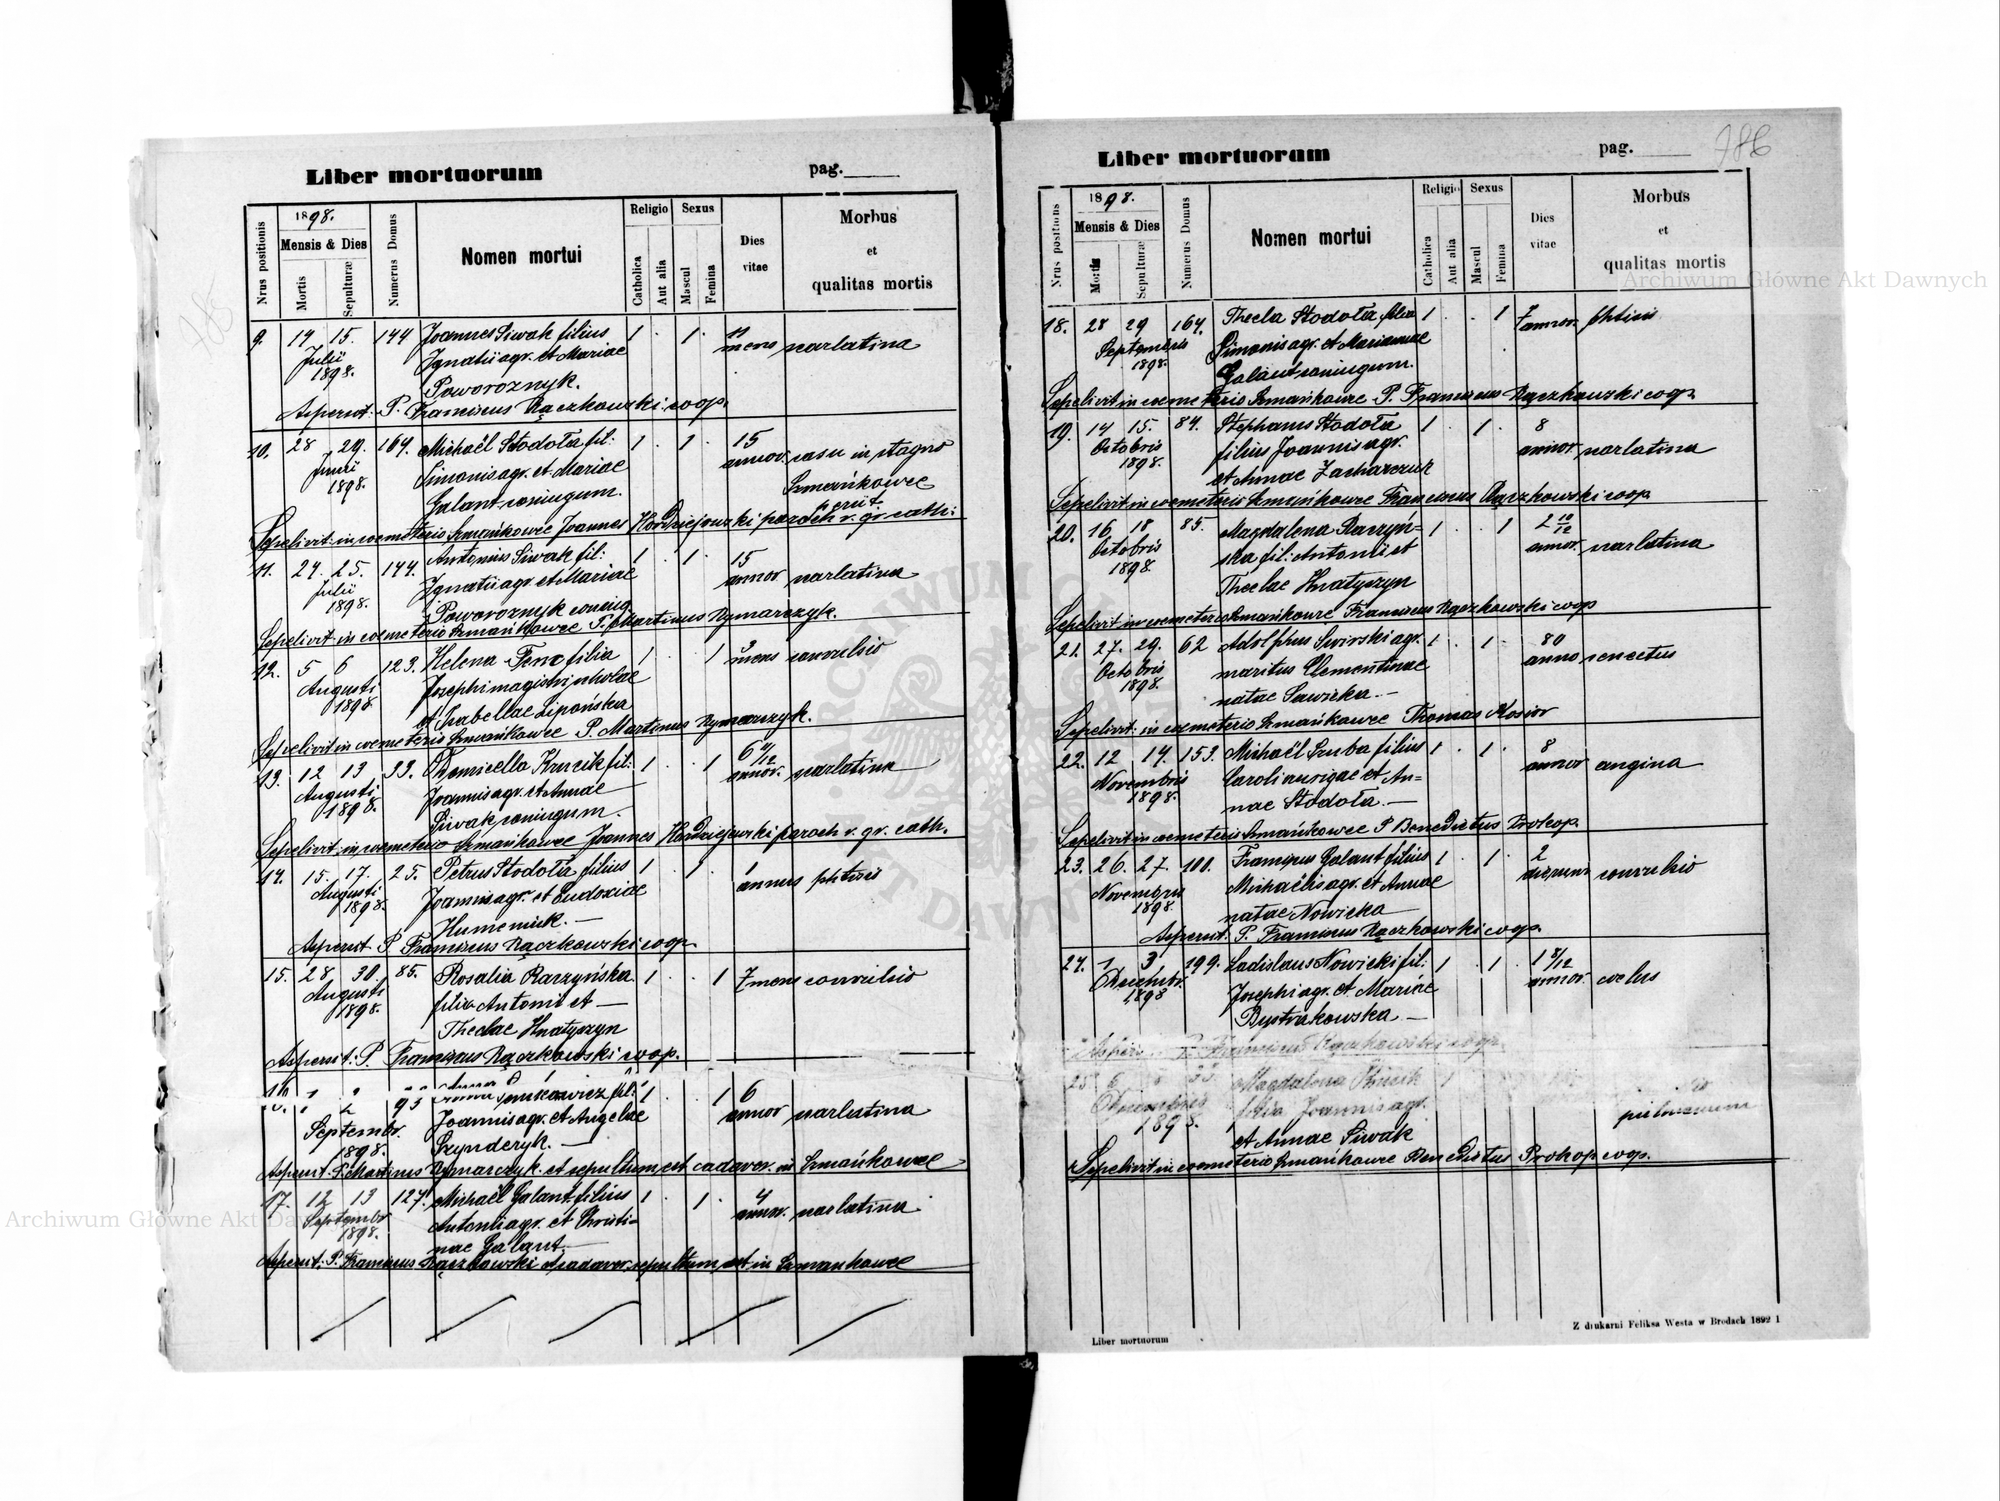 Liber mortuorum pag.
Nrus positionis
1898.
Mensis & Dies
Mortis
Sepulturæ
Numerus Domus
Nomen mortui
Religio
Catholica
Aut alia
Sexus
Mascul
Femina
Dies vitae
Morbus
et
qualitas mortis
9. 14 15. 144 Joannes Siwak filius 1 . 1 . 11 scarlatina
Julii Ignatii agr. et Mariae mens
1898. Poworoznyk.
Aspersit. P. Franciscus Rączkowski coop.
10. 28 29. 164. Michaël Stodoła fil: 1 . 1 . 15
1898. Simonis agr. et Mariae annor. casu in stagno
Galant coniugum. Szmańkowce
periit.
Sepelivit in coemeterio Szmańkowce Joannes paroch r. gr. cath:
11. 24. 25. 144. Antonius Siwak fil: 1 . 1 . 15
Julii Ignatii agr. et Mariae annor scarlatina
1898. Poworoznyk coniug
Sepelivit in coemeterio Szmańkowce P. Martinus Rymarczyk.
12. 5 6 123. Helena filia 1 . . 1 3 convulsio
Augusti Josephi magistri scholae mens
1898. et Isabellae Lipońska
Sepelivit in coemeterio Szmańkowce P. Martinus Rymarczyk.
13. 12 13 33. fil: 1 . . 1 6
Augusti Joannis agr. et Annae annor. scarlatina
1898. Siwak coniugum.
Sepelivit in coemeterio Szmańkowce Joannes paroch r. gr. cath.
14. 15. 17. 25. Petrus Stodoła filius 1 . 1 . 1
Augusti Joannis agr. et Eudoxiae annus phtisis
1898. Humeniuk. —
Aspersit P Franciscus Rączkowski coop.
15. 28 30. 85. Rosalia Raszyńska 1 . . 1 7 mens convulsio
Augusti filia Antonii et —
1898. Theclae Hnatyszyn
Aspersit: P. Franciscus Rączkowski coop.
16. 1 2 93 Anna fil: 1 . . 1 6
Septembr. Joannis agr. et Angelae annor scarlatina
1898. Szynderyk. —
Aspersit. P. Martinus Rymarczyk. et sepultum est cadaver. in Szmańkowce
17. 12 13 127. Michaël Galant filius 1 . 1 . 4
Septembr Antonii agr. et Christi= annor. scarlatina
1898. nae Galant. —
Aspersit: P. Franciscus Rączkowski et cadaver sepultum est in Szmankowce
Liber mortuorum pag. 786
Nrus positionis
1898.
Mensis & Dies
Mortis
Sepulturæ
Numerus Domus
Nomen mortui
Religio
Catholica
Aut alia
Sexus
Mascul
Femina
Dies vitae
Morbus
et
qualitas mortis
18. 28 29 164. Thecla Stodoła filia 1 . . 1 7 annor. phtisis
Septembris Simonis agr. et Mariannae
1898. Galant coniugum.
Sepelivit in coemeterio Szmańkowce P. Franciscus Rączkowski coop.
19. 14 15. 84. Stephanus Stodoła 1 . 1 . 8
Octobris filius Joannis agr. annor scarlatina
1898. et Annae Zacharczuk
Sepelivit in coemeterio Szmańkowce Franciscus Rączkowski coop
20. 16 18 85. Magdalena Raszyń= 1 . . 1 2 10/12
Octobris ska fil: Antonii et annor. scarlatina
1898. Theclae Hnatyszyn
Sepelivit in coemeterio Szmańkowce Franciscus Rączkowski coop
21. 27. 29. 62 Adolphus Swirski agr. 1 . 1 . 80
Octobris maritus Clementinae anno senectus
1898. natae Sawicka. —
Sepelivit: in coemeterio Szmańkowce Thomas Mosior
22. 12 14. 153. Michaël Szuba filius 1 . 1 . 8
Novembris Caroli aurigae et An= annor angina
1898. nae Stodoła. —
Sepelivit in coemeterio Szmańkowce P Benedictus Prokop.
23. 26. 27. Franciscus Galant filius 1 . 1 . 2
Novembris Michaëlis agr. et Annae dierum convulsio
1898. natae Nowicka
Aspersit. P. Franciscus Rączkowski coop.
24. 1 3 199. Ladislaus Nowicki fil: 1 . 1 . 1 8/12
Decembr. Josephi agr. et Mariae annor.
1898 Bystrakowska. —
P. Franciscus Rączkowski coop.
25 33 Magdalena 1
Decembris filia Joannis agr.
1898. et Annae Siwak
Sepelivit in coemeterio Szmańkowce Benedictus Prokop coop.
Liber mortuorum
Z drukarni Feliksa Westa w Brodach 1892 1
Archiwum Główne Akt Dawnych
Archiwum Główne Akt Dawnych